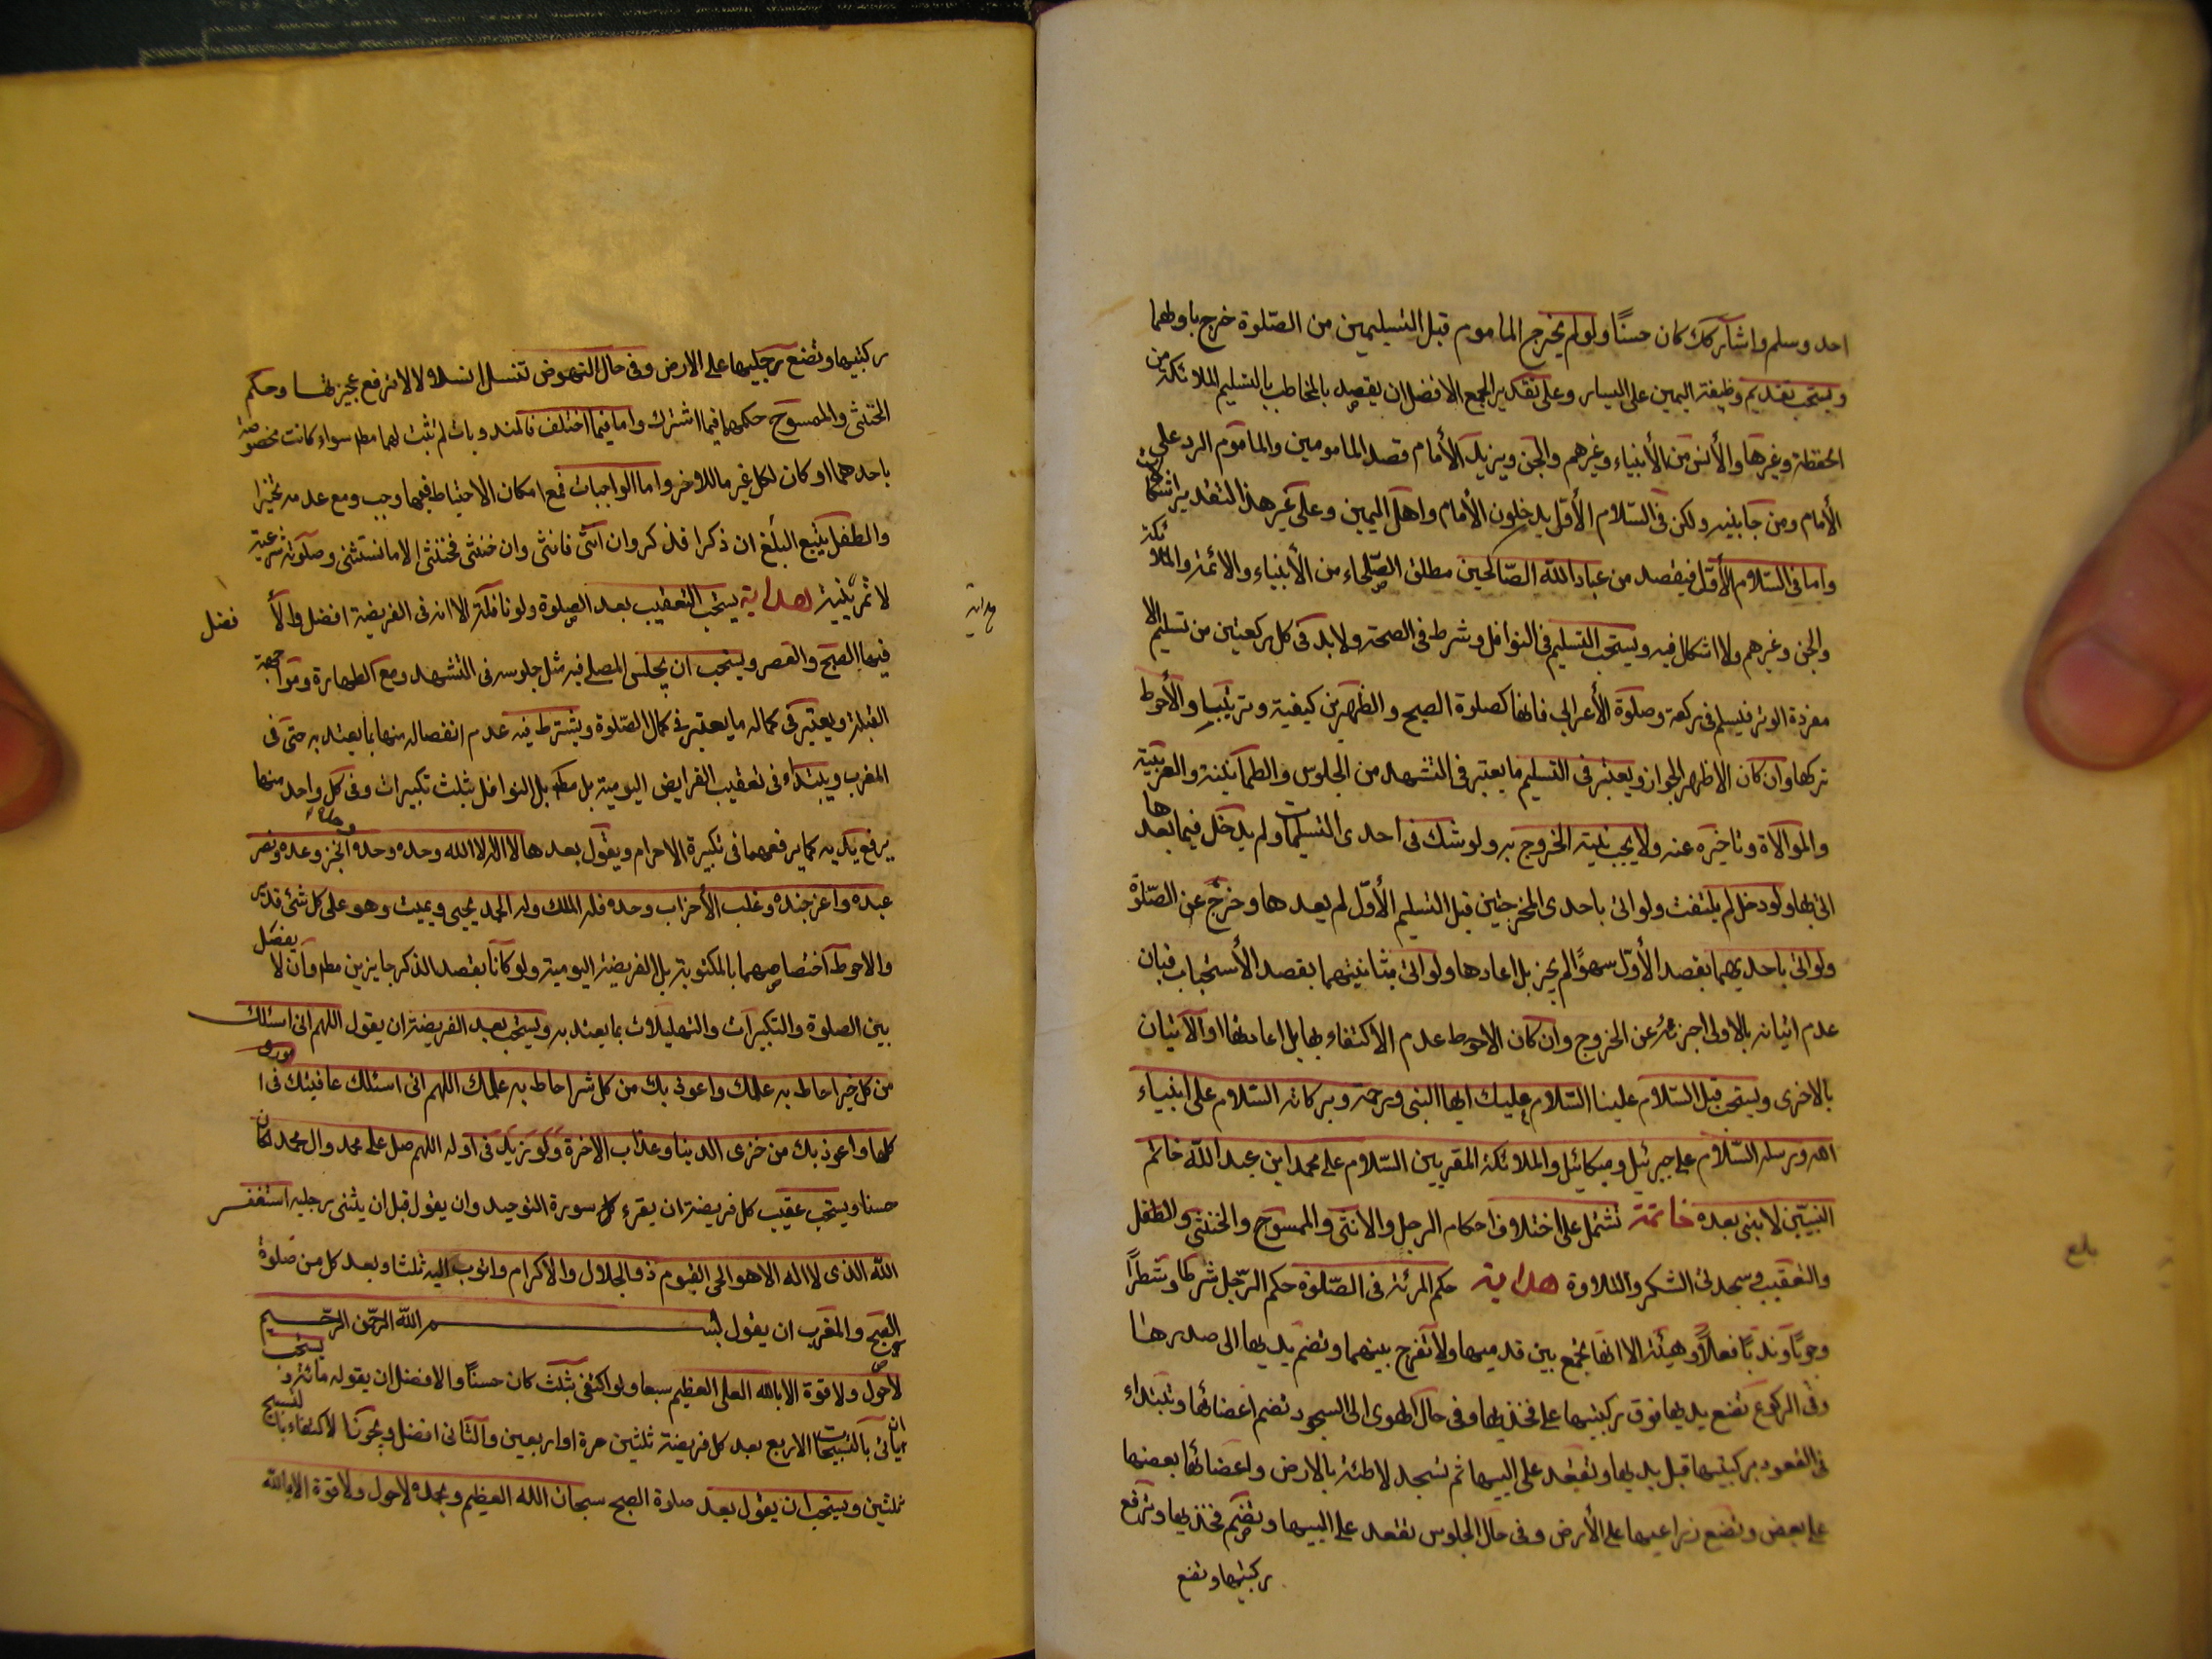 احد وسلم واشار كك كان حسنًا ولو لم يخرج الماموم قبل التسليمين من الصّلوة خرج باولهما
ويستحب تقديم وظيفة اليمين على اليسار وعلى تقدير الجمع الافضل ان يقصد بالمخاطب بالتسليم الملائكة من
الحفظة وغيرها والأنس من الأنبياء وغيرهم والجن ويزيد الأمام قصد المامومين والماموم الرد على
الأمام ومن جانبيه ولكن فى السّلام الأوّل يدخلون الأمام واهل اليمين وعلى غير هذا التقدير اشكال
واما فى السّلام الأوّل فيقصد من عباد الله الصّالحين مطلق الصّلحاء من الأنبياء والائمة والملائكة
والجن وغيرهم ولا اشكال فيه ويستحب التسليم فى النوافل وشرط فى الصحة ولا بد فى كل ركعتين من تسليم الا
مفردة الوتر فيسلم فى ركعة وصلوة الأعرابى فانها كصلوة الصبح والظهرين كيفية وترتيبا والأحوط
تركها وان كان الاظهر الجواز ويعتبر فى التسليم ما يعتبر فى التشهد من الجلوس والطمأنينة والعربيّة
والموالاة وتاخيره عنه ولا يجب نية الخروج به ولو شك فى احدى التسليمات ولم يدخل فيما بعدها
اتى بها ولو دخل لم يلتفت ولو اتى باحدى المخرجتين قبل التسليم الأوّل لم يعدها وخرج عن الصّلوة
ولو اتى باحديهما بقصد الأوّل سهوًا لم يجز بل اعادها ولو اتى بثانيتهما بقصد الأستحباب فبان
عدم اتيانه بالاولى اجزئه عن الخروج وان كان الاحوط عدم الاكتفاء بها بل اعادتها او الأتيان
بالاخرى ويستحب قبل السّلام علينا السّلام عليك ايها النبى ورحمة وبركاته السّلام على انبياء
الله ورسله السّلام على جبرئيل وميكائيل والملائكة المقربين السّلام على محمد ابن عبد الله خاتم
النبيّين لا نبى بعده خاتمة تشتمل على اختلاف احكام الرجل والانثى والممسوح والخنثى والطفل
والتعقيب وسجدتى الشكر والتلاوة هداية حكم المرئة فى الصّلوة حكم الرّجل شرطا وشطرًا
وجوبًا وندبًا فعلًا وهيئة الا انها تجمع بين قدميها ولا تفرج بينهما وتضم يديها الى صدرها
وفى الركوع تضع يديها فوق ركبتيها على فخذيها وفى حال الهوى الى السجود تضم اعضائها وتبتداء
فى القعود بركبتيها قبل يديها وتقعد على اليبها ثم تسجد لاطئة بالارض واعضائها بعضها
على بعض وتضع زراعيها على الأرض وفى حال الجلوس تقعد على اليبها وتضم فخذيها وترفع
ركبتيها وتضع
بلغ
ركبتيها وتضع رجليها على الارض وفى حال النهوض تنسل انسلالا لا ترفع عجيزتها وحكم
الخنثى والممسوح حكمهما فيما اشترك واما فيما اختلف فالمندوبات لم تثبت لهما مطم سواء كانت مخصوصة
باحدهما او كان لكل غير ما للاخر واما الواجبات فمع امكان الاحتياط فيها وجب ومع عدمه تخيرا
والطفل يتبع البلغ ان ذكرا فذكر وان انثى فانثى وان خنثى فخنثى الا ما نستثنى وصلوته شرعية
لا تمرينية هداية يستحب التعقيب بعد الصلوة ولو نافلة الا انه فى الفريضة افضل والأفضل
هداية
فيها الصبح والعصر ويستحب ان يجلس المصلى فيه مثل جلوسه فى التشهد ومع الطهارة ومواجهة
القبلة ويعتبر فى كماله ما يعتبر فى كمال الصّلوة ويشترط فيه عدم انفصاله منها بما يعتد به حتى فى
المغرب ويبتداء فى تعقيب الفرايض اليومية بل مطم بل النوافل بثلث تكبيرات وفى كل واحد منها
يرفع يديه كما يرفعهما فى تكبيرة الاحرام ويقول بعدها لا اله الا الله وحده وحده وحده انجز وعده ونصر
عبده واعز جنده وغلب الأحزاب وحده فله الملك وله الحمد يحيى ويميت وهو على كل شئ قدير
والاحوط اختصاصهما بالمكتوبة بل الفريضة اليومية ولو كانا بقصد الذكر جايزين مطم وان لا يفصل
بين الصلوة والتكبيرات والتهليلات بما يعتد به ويستحب بعد الفريضة ان يقول اللهم انى اسئلك
من كل خير احاط به علمك واعوذ بك من كل شر احاط به علمك اللهم انى اسئلك عافيتك فى امورى
كلها واعوذ بك من خزى الدنيا وعذاب الاخرة ولو يزيد فى اوله اللهم صل على محمد وال محمد لكان
حسنا ويستحب عقيب كل فريضة ان يقرء سورة التوحيد وان يقول قبل ان يثنى رجليه استغفر
الله الذى لا اله الا هو الحى القيوم ذو الجلال والاكرام واتوب اليه ثلثا وبعد كل من صلوة
الصبح والمغرب ان يقول بسم الله الرحمن الرحيم
لا حول ولا قوة الا بالله العلى العظيم سبعا ولو اكتفى بثلث كان حسنًا والافضل ان يقوله مائة ويستحب
ان ياتى بالتسبيحات الاربع بعد كل فريضة ثلثين مرة او اربعين والثانى افضل ويجوز الاكتفاء بالتسبيح
ثلثين ويستحب ان يقول بعد صلوة الصبح سبحان الله العظيم وبحمده لا حول ولا قوة الا بالله